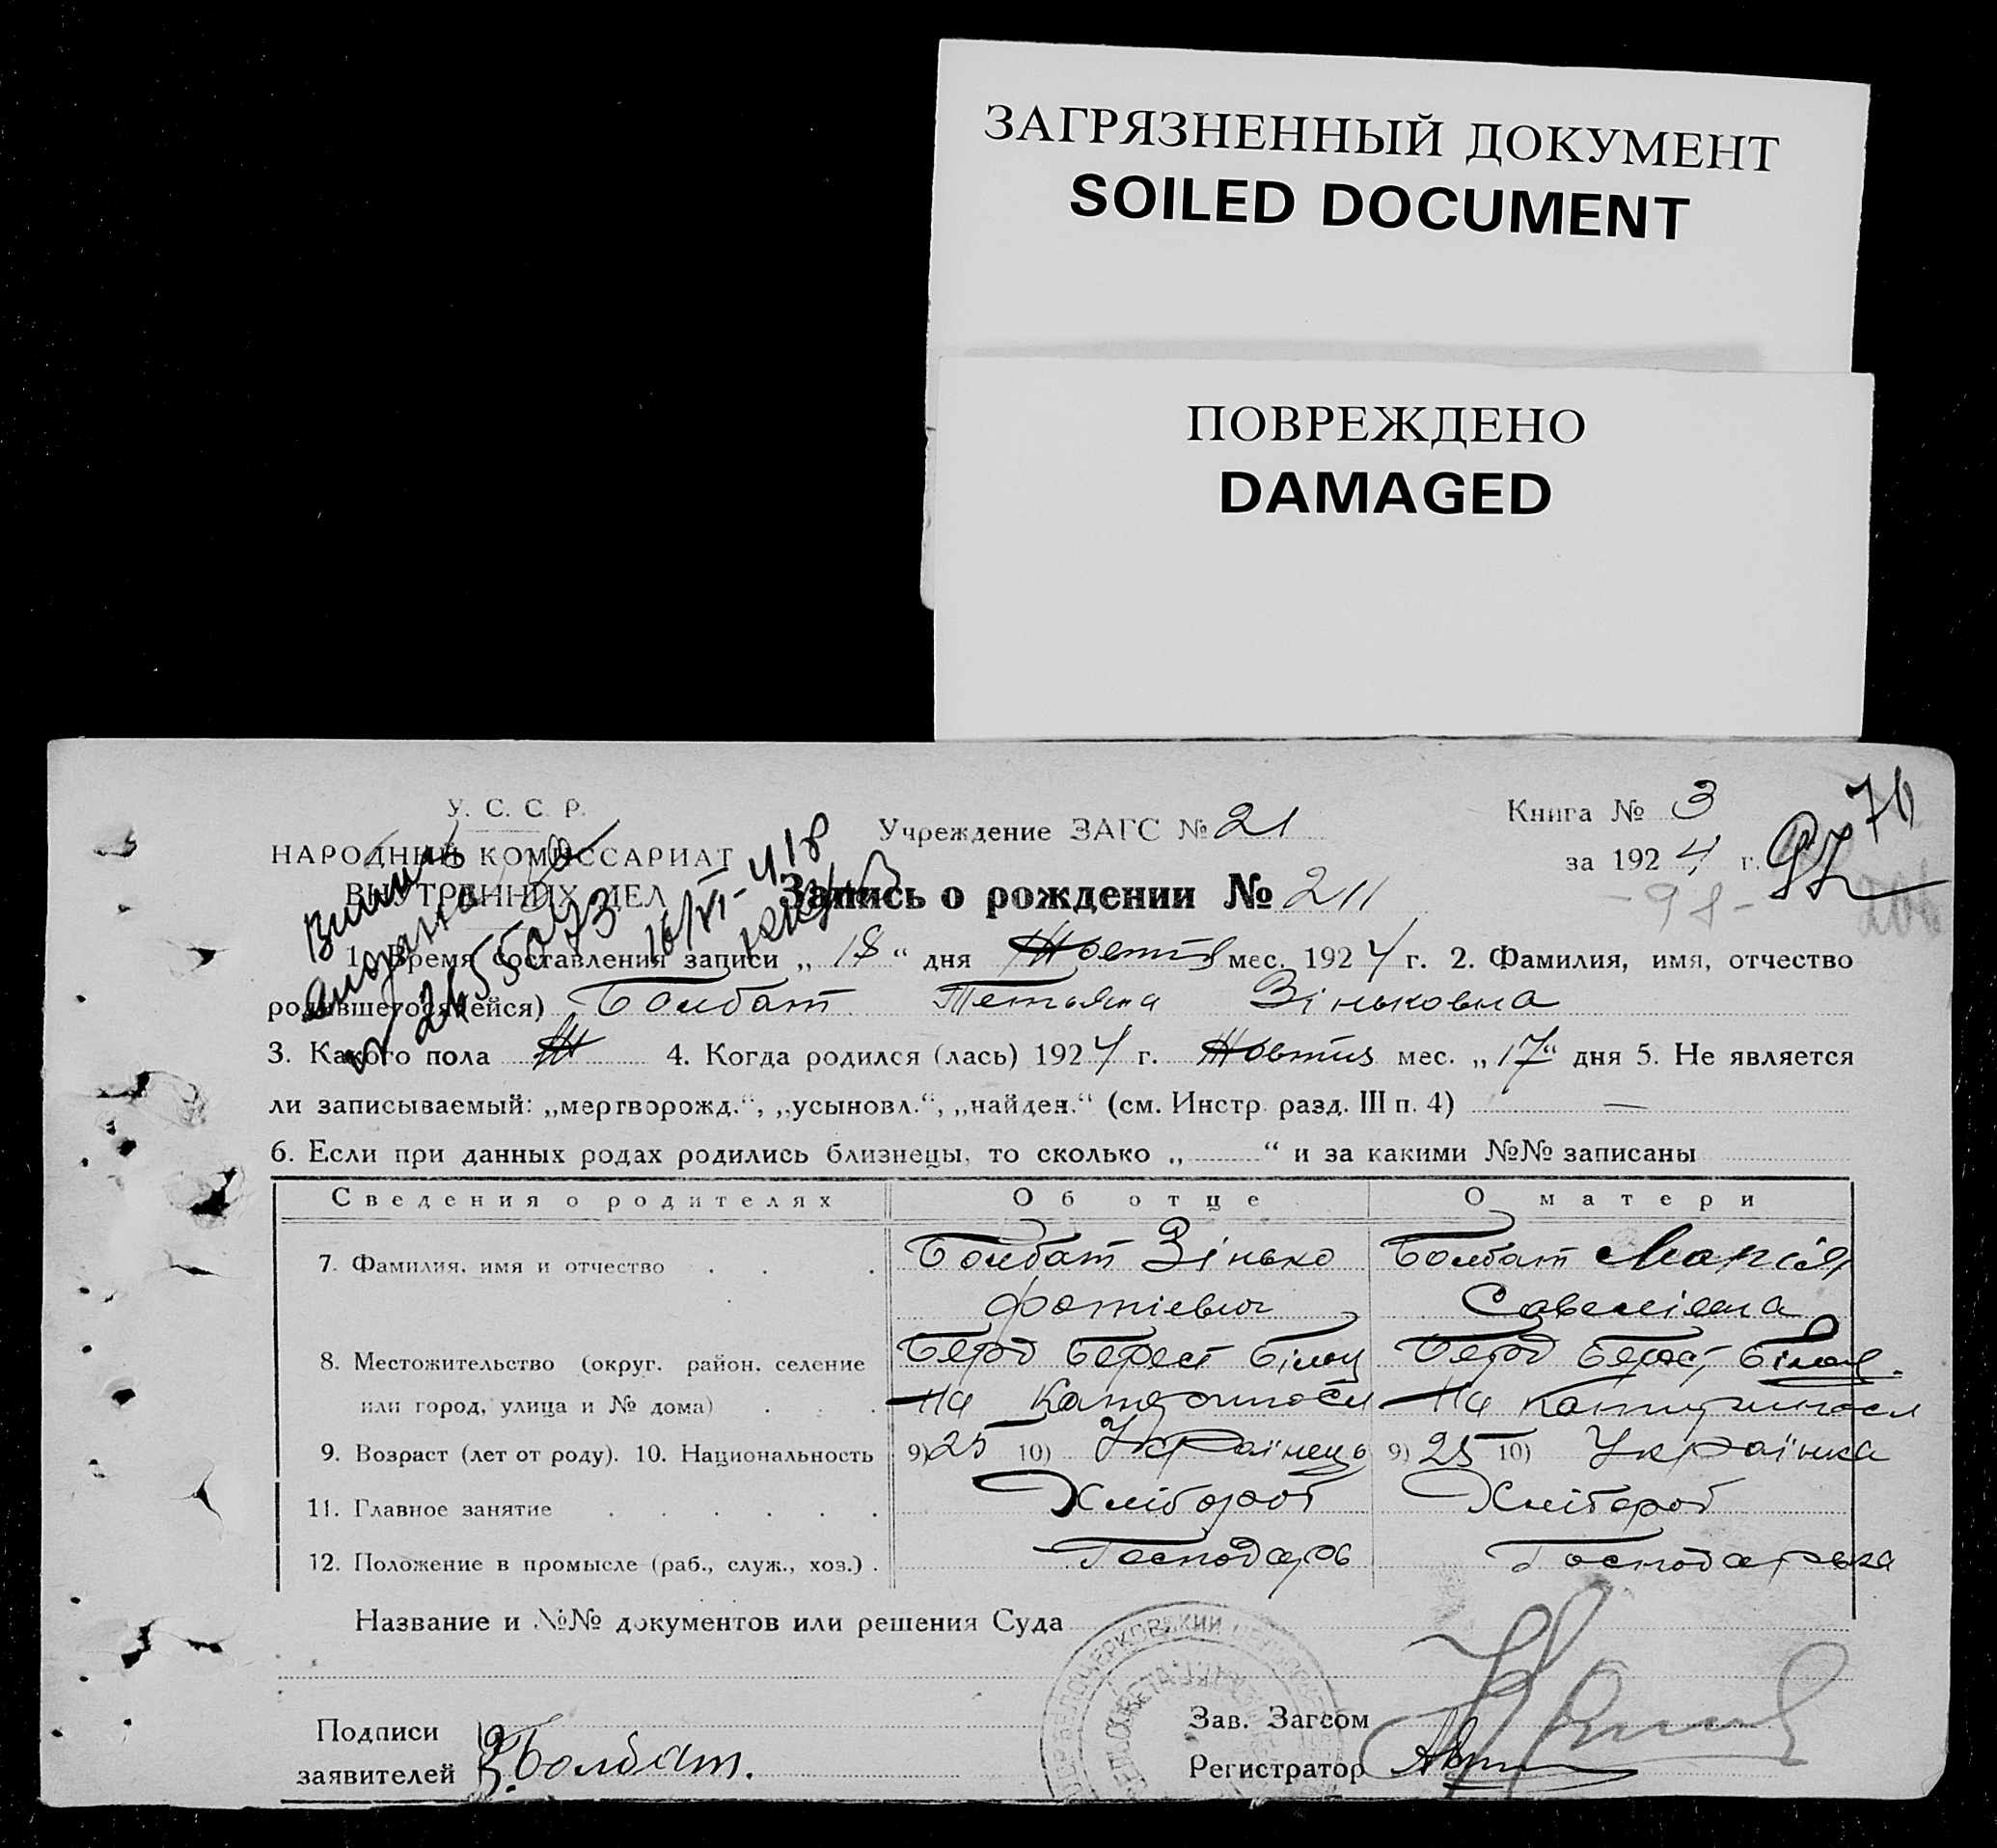 ЗАГРЯЗНЕННЫЙ ДОКУМЕНТ
SOILED DOCUMENT
ПОВРЕЖДЕНО
DAMAGED
У. С. С. Р.
НАРОДНЫЙ КОМИССАРИАТ
ВНУТРЕННИХ ДЕЛ
Учреждение ЗАГС № 21
Книга № 3
за 1924 г.
76
97
- 98 -
Запись о рождении № 211
16/VI-41 г.
1. Время составления записи „ 18 “ дня Жовтня мес. 1924 г. 2. Фамилия, имя, отчество
родившегося(ейся) Болбат Тетьяна Зіньковна
3. Какого пола Ж 4. Когда родился (лась) 1924 г. Жовтня мес. „17“ дня 5. Не является
ли записываемый: „мертворожд.“, „усыновл.“, „найден.“ (см. Инстр. разд. III п. 4) —
6. Если при данных родах родились близнецы, то сколько „ “ и за какими №№ записаны
Сведения о родителях Об отце О матери
7. Фамилия, имя и отчество Болбат Зінько Болбат Марія
Фотіевич Савеліевна
8. Местожительство (округ. район. селение Берд Берест Білоц Берд Берест Білоц.
или город, улица и № дома)
9. Возраст (лет от роду). 10. Национальность 9) 25 10) Українець 9) 25 10) Українка
11. Главное занятие Хлібороб Хлібороб
12. Положение в промысле (раб., служ., хоз.) Господарь Господарька
Название и №№ документов или решения Суда
Подписи
заявителей З. Болбат.
Зав. Загсом
Регистратор